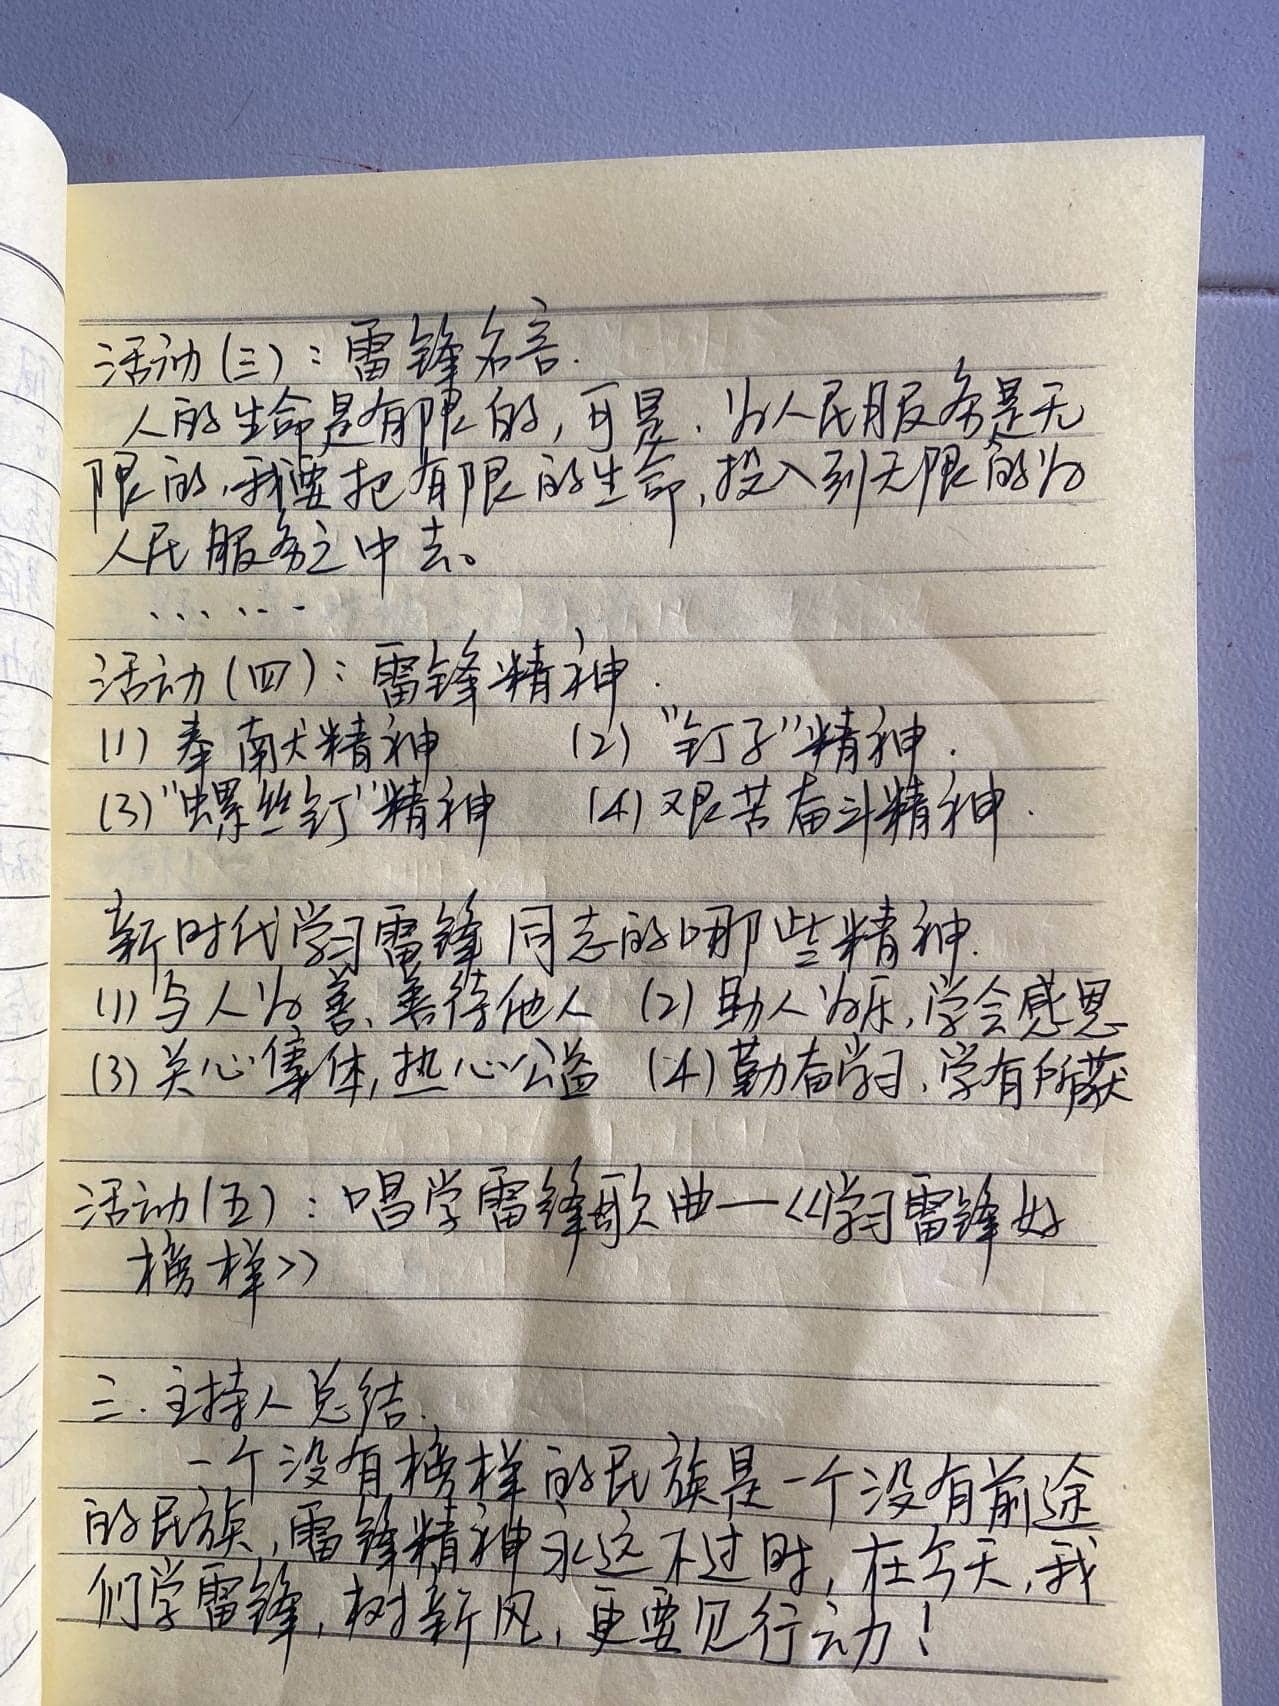 活动(三):雷锋名言.
人的生命是有限的,可是,为人民服务是无
限的,我要把有限的生命,投入到无限的为
人民服务之中去。
......
活动(四):雷锋精神.
(1)奉献精神 (2)"钉子"精神.
(3)"螺丝钉"精神 (4)艰苦奋斗精神.
新时代学习雷锋同志的哪些精神.
(1)与人为善、善待他人 (2)助人为乐,学会感恩
(3)关心集体,热心公益 (4)勤奋学习、学有所获
活动(五):唱学雷锋歌曲—《学习雷锋好
榜样》
三.主持人总结.
一个没有榜样的民族是一个没有前途
的民族,雷锋精神永远不过时,在今天,我
们学雷锋,树新风,更要见行动!